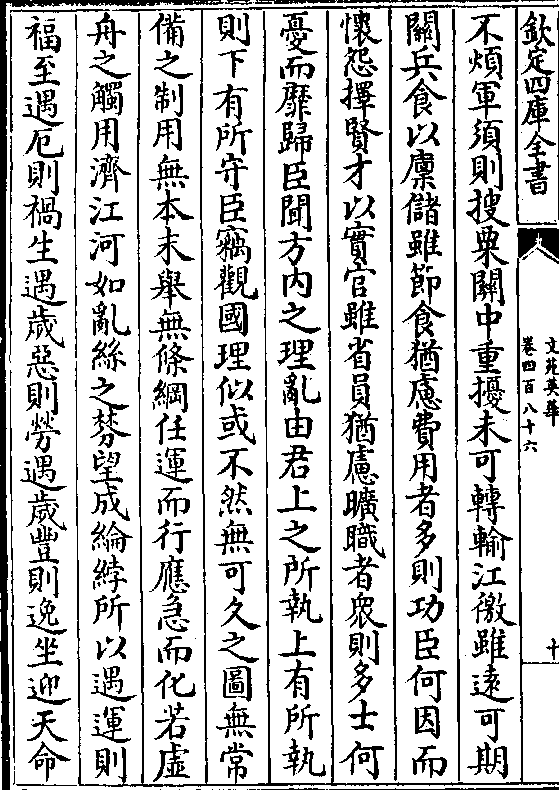 欽定四庫全書
文苑英華
卷四百八十六
十
不煩軍須則搜粟關中重擾未可轉輸江徼雖遠可期
關兵食以廩儲雖節食猶慮費用者多則功臣何因而
懷怨擇賢才以實官雖省員猶慮曠職者衆則多士何
憂而靡歸臣聞方内之理亂由君上之所執上有所執
則下有所守臣竊觀國理似或不然無可久之圖無常
備之制用無本末舉無條綱任運而行應急而化若虛
舟之觸用濟江河如亂絲之棼望成綸綍所以遇運則
福至遇厄則禍生遇歲惡則勞遇歲豐則逸坐迎天命